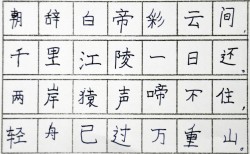 朝辞白帝彩云间，
千里江陵一日还。
两岸猿声啼不住，
轻舟已过万重山。